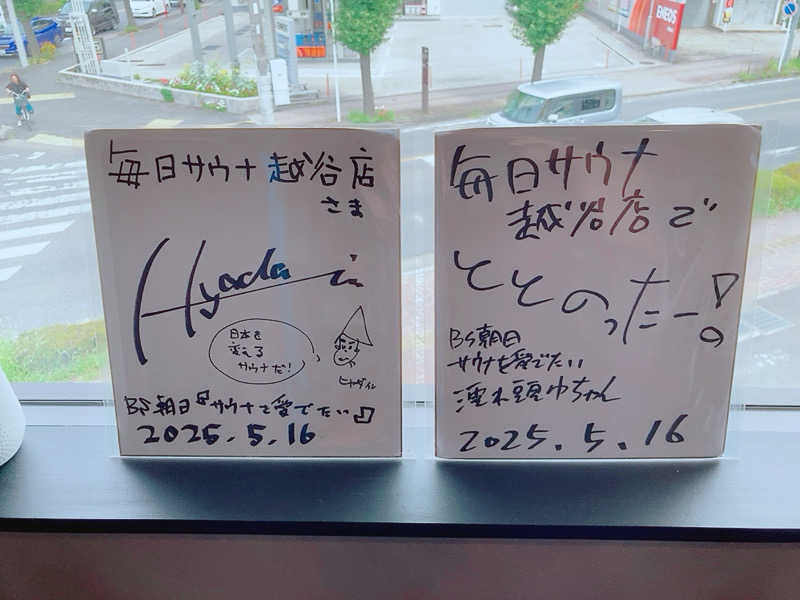 毎日サウナ 越谷店
さま
Hyadain
日本を
変える
サウナだ!
ヒャダイン
BS朝日『サウナを愛でたい』
2025.5.16
毎日サウナ
越谷店で
ととのったー!
BS朝日
サウナを愛でたい
濡れ頭巾ちゃん
2025.5.16
ENEOS